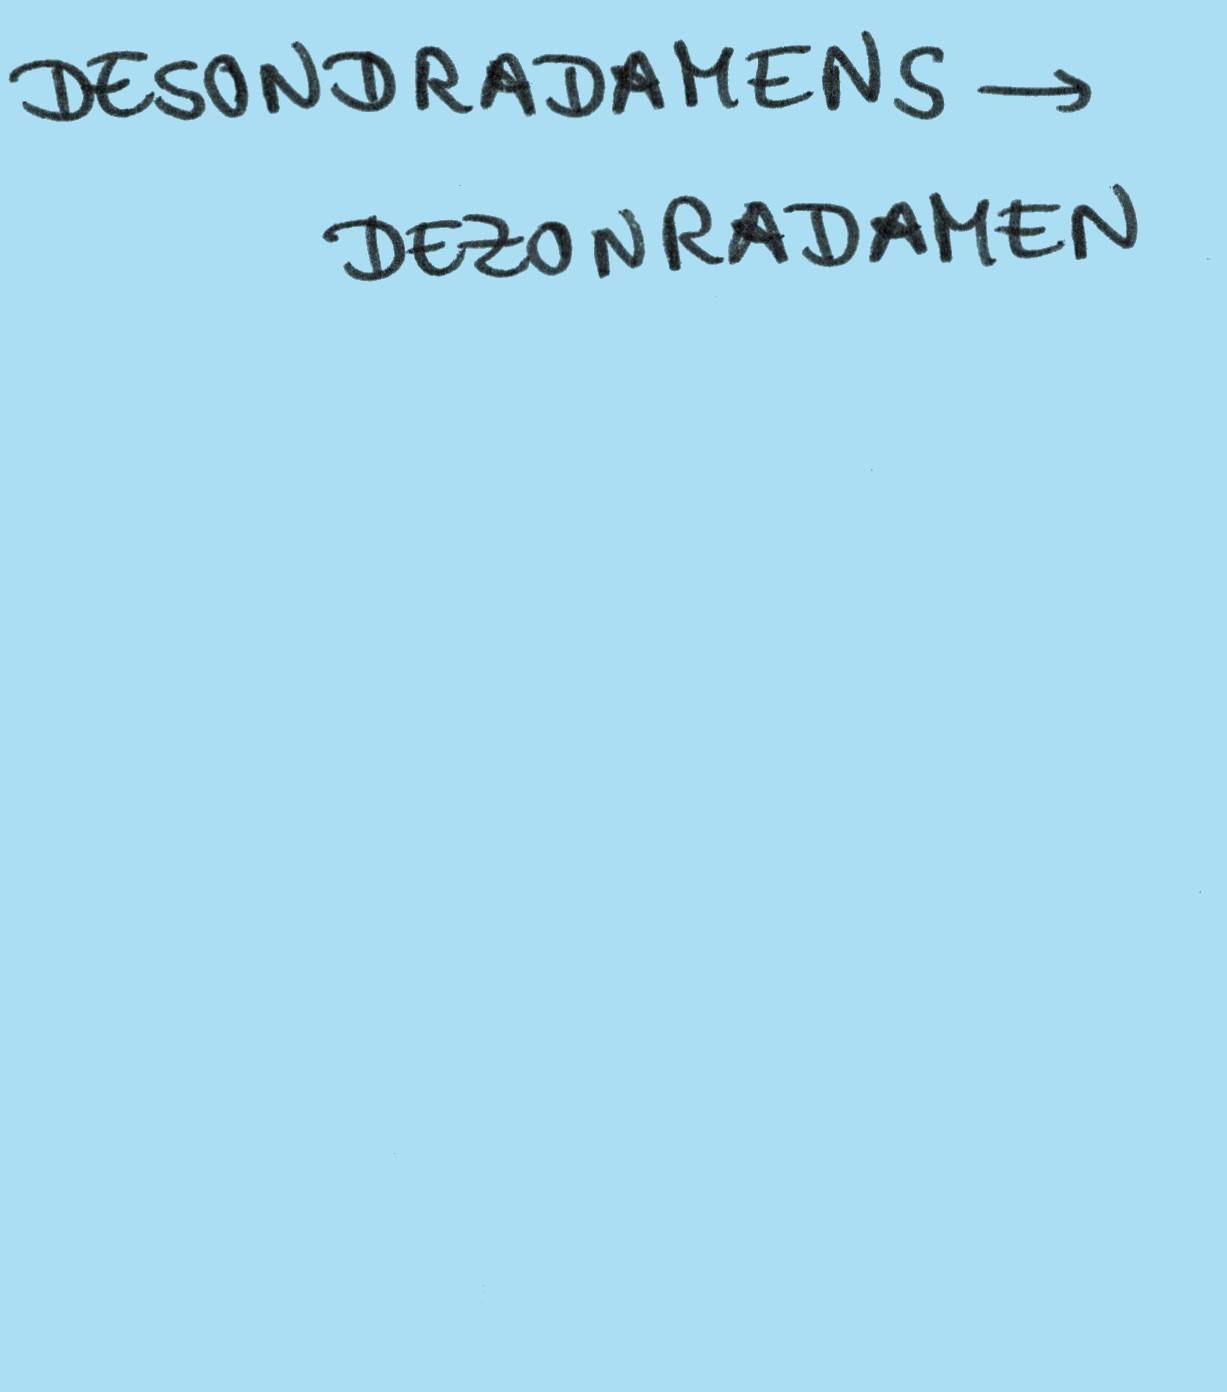 DESONDRADAMENS →
DEZONRADAMEN